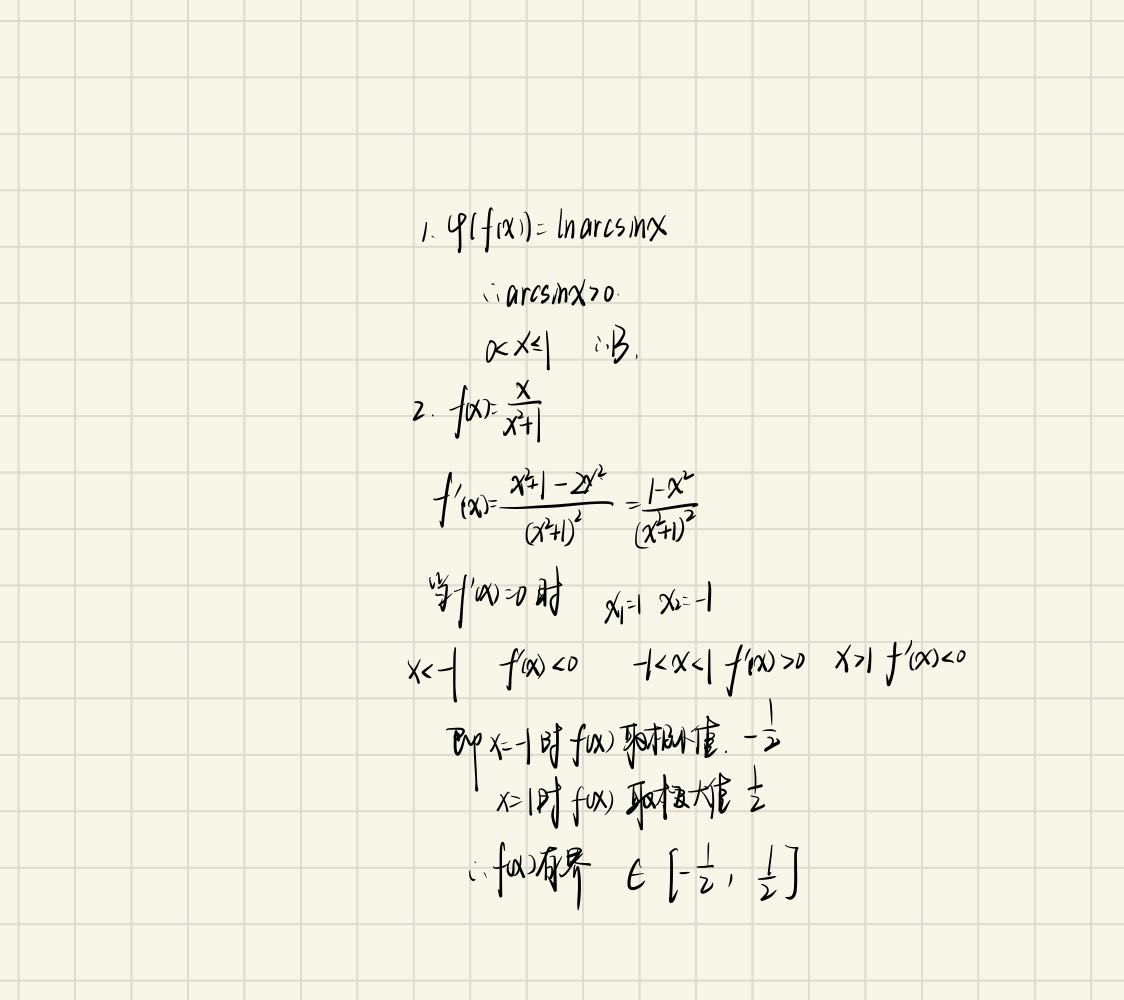 1. φ(f(x))=ln arcsinx
∴arcsinx>0.
0<x≤1 ∴B.
2. f(x)=x/(x²+1)
f'(x)=(x²+1-2x²)/(x²+1)²=(1-x²)/(x²+1)²
当f'(x)=0时 x₁=1 x₂=-1
x<-1 f'(x)<0 -1<x<1 f'(x)>0 x>1 f'(x)<0
即x=-1时f(x)取极小值.-1/2
x=1时f(x)取极大值1/2
∴f(x)有界 ∈[-1/2, 1/2]